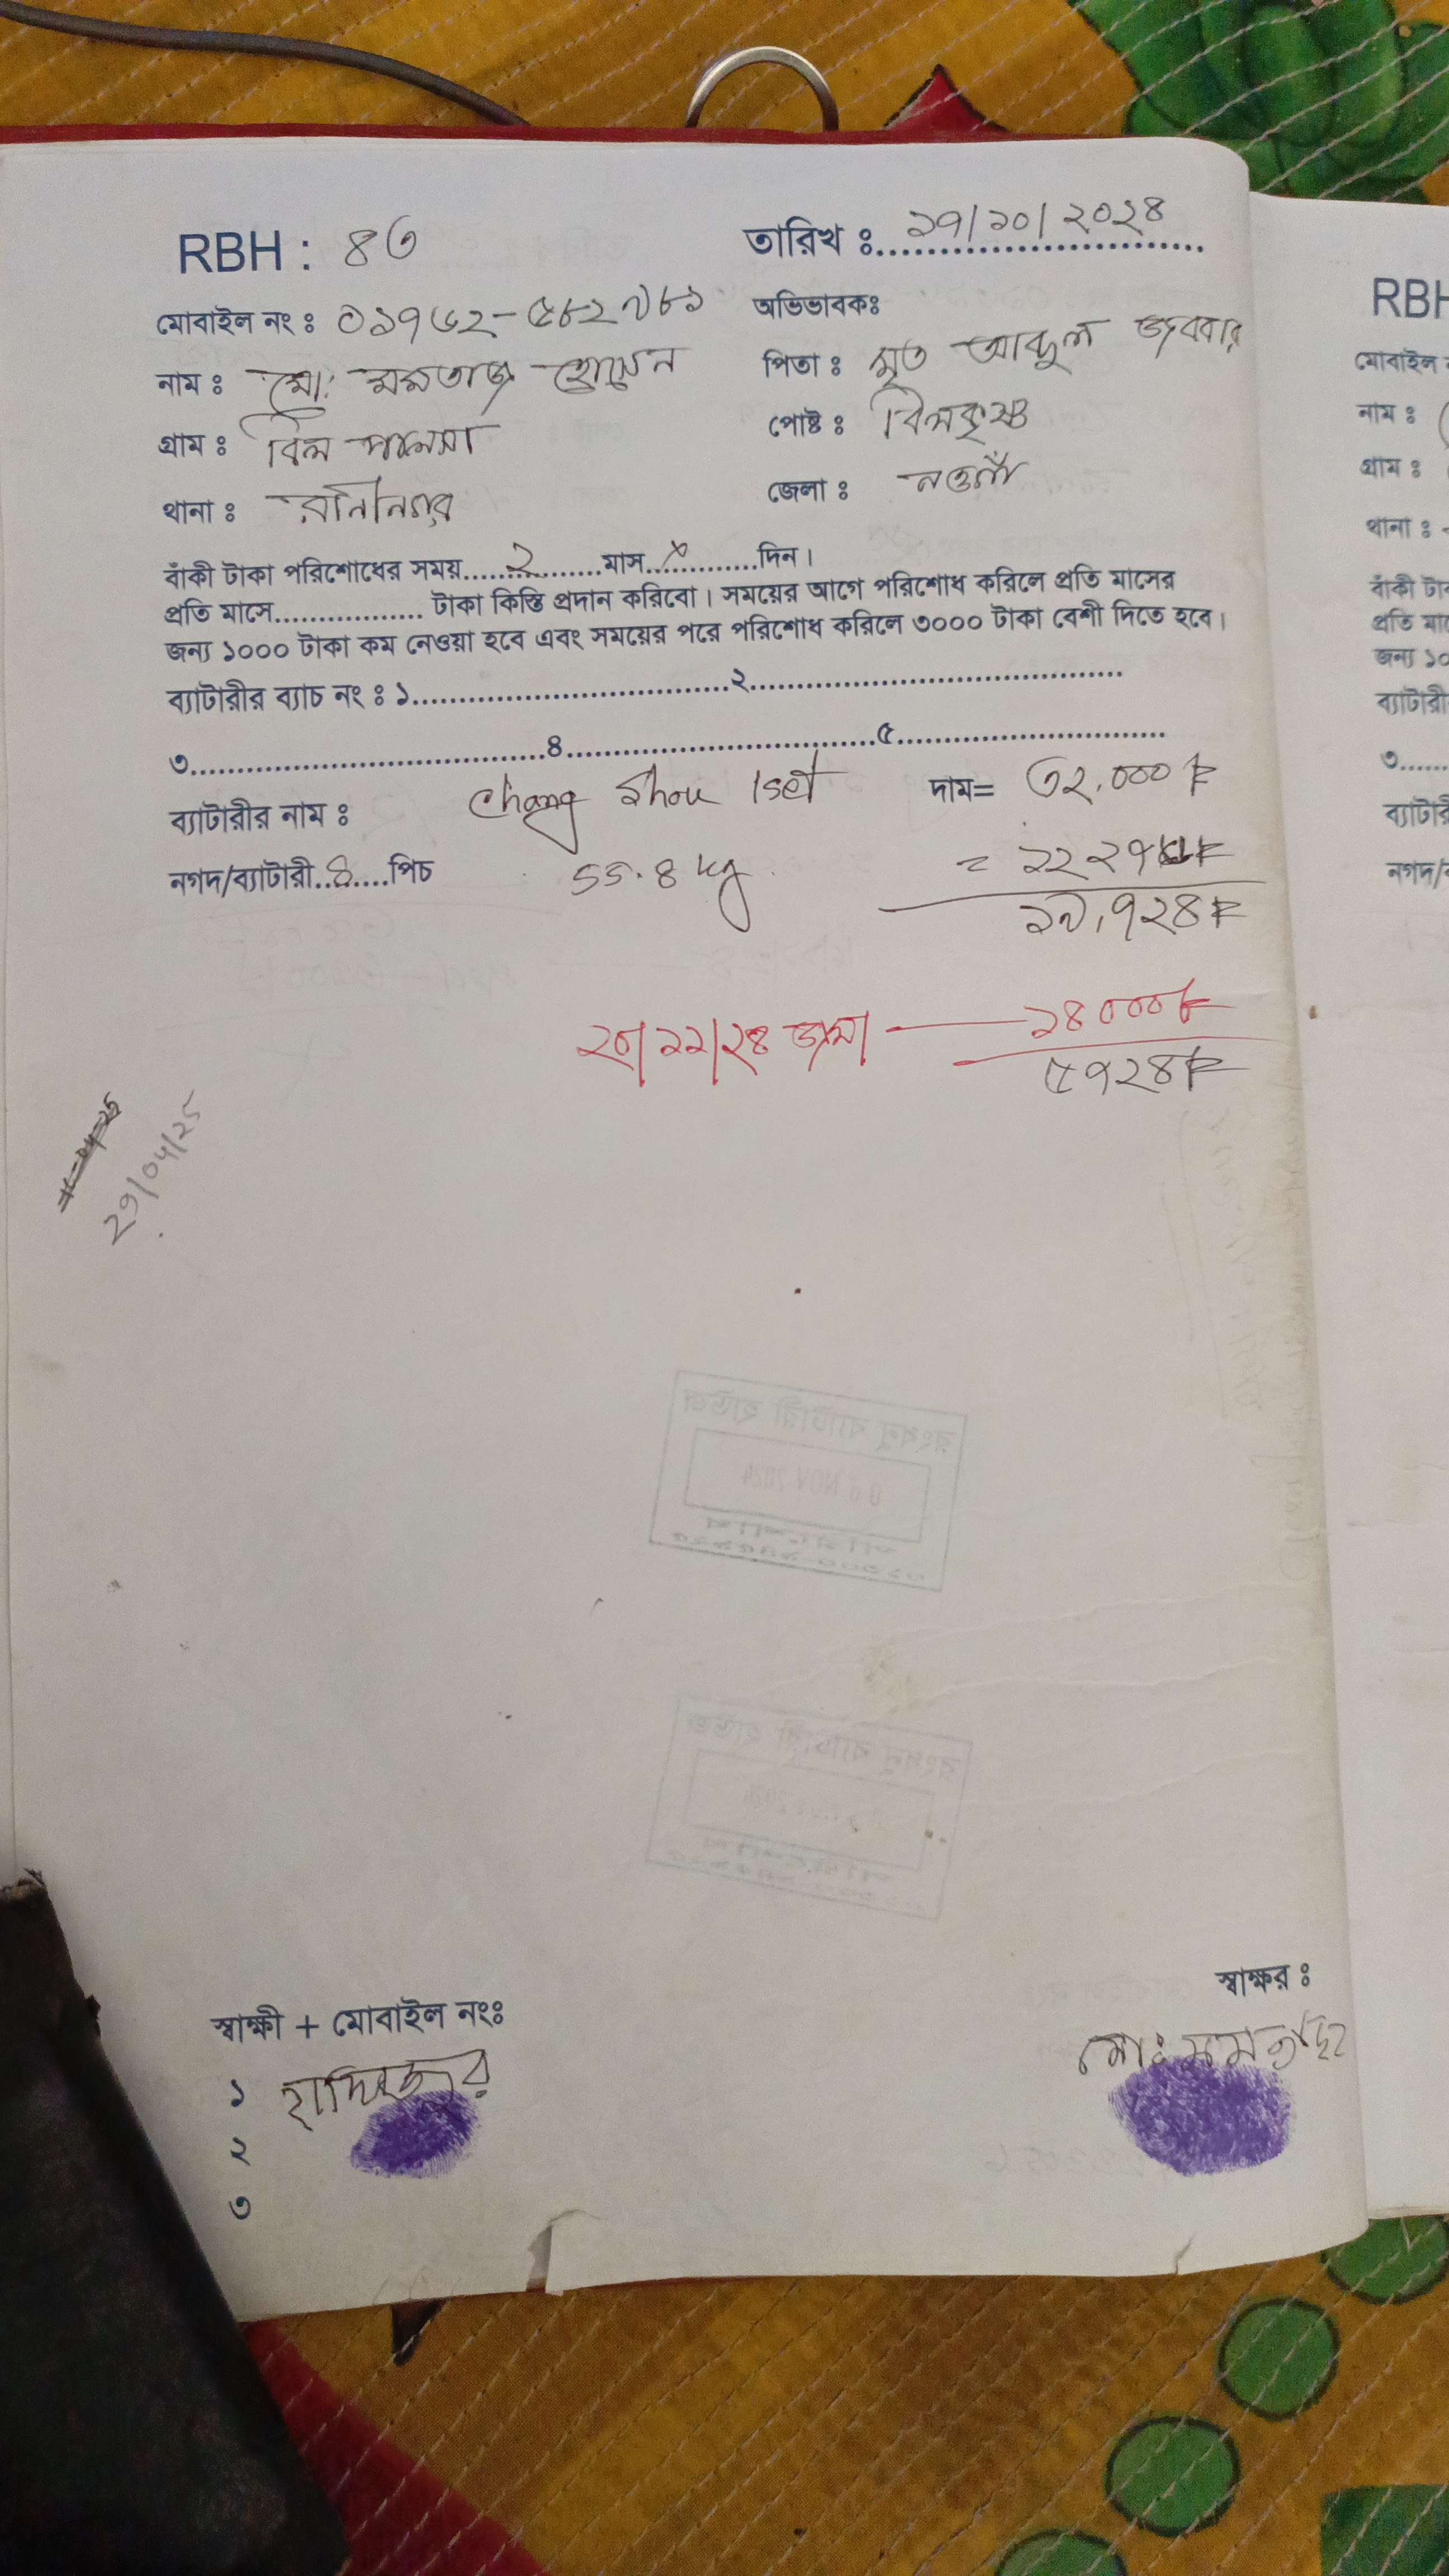 RBH : ৪৩
তারিখ ঃ ১৭/১০/২০২৪
মোবাইল নং ঃ ০১৭৬২-৫৮২৭৮১
অভিভাবকঃ
নাম ঃ মো: মমতাজ হোসেন
পিতা ঃ মৃত আব্দুল জব্বার
গ্রাম ঃ বিল পালসা
পোষ্ট ঃ বিলকৃষ্ণ
থানা ঃ রানীনগর
জেলা ঃ নওগাঁ
বাঁকী টাকা পরিশোধের সময়......২.........মাস..×.........দিন।
প্রতি মাসে.................. টাকা কিস্তি প্রদান করিবো। সময়ের আগে পরিশোধ করিলে প্রতি মাসের
জন্য ১০০০ টাকা কম নেওয়া হবে এবং সময়ের পরে পরিশোধ করিলে ৩০০০ টাকা বেশী দিতে হবে।
ব্যাটারীর ব্যাচ নং ঃ ১....................................২..........................................
৩........................................৪...................................৫..............................
ব্যাটারীর নাম ঃ Chang Shou 1set দাম= ৩২,০০০৳
নগদ/ব্যাটারী..৪....পিচ ৯৯.৪ kg = ১২২৭৬৳
১৯,৭২৪৳
২০/১১/২৪ জমা — ১৪০০০৳
৫৭২৪৳
২৭/০৪/২৫
স্বাক্ষর ঃ
স্বাক্ষী + মোবাইল নংঃ
মো: মমতাজ
১ হাফিজুর
২
৩
RBH
মোবাইল
নাম ঃ
গ্রাম ঃ
থানা ঃ
বাঁকী টা
প্রতি মা
জন্য ১০
ব্যাটারী
৩......
ব্যাটারী
নগদ/